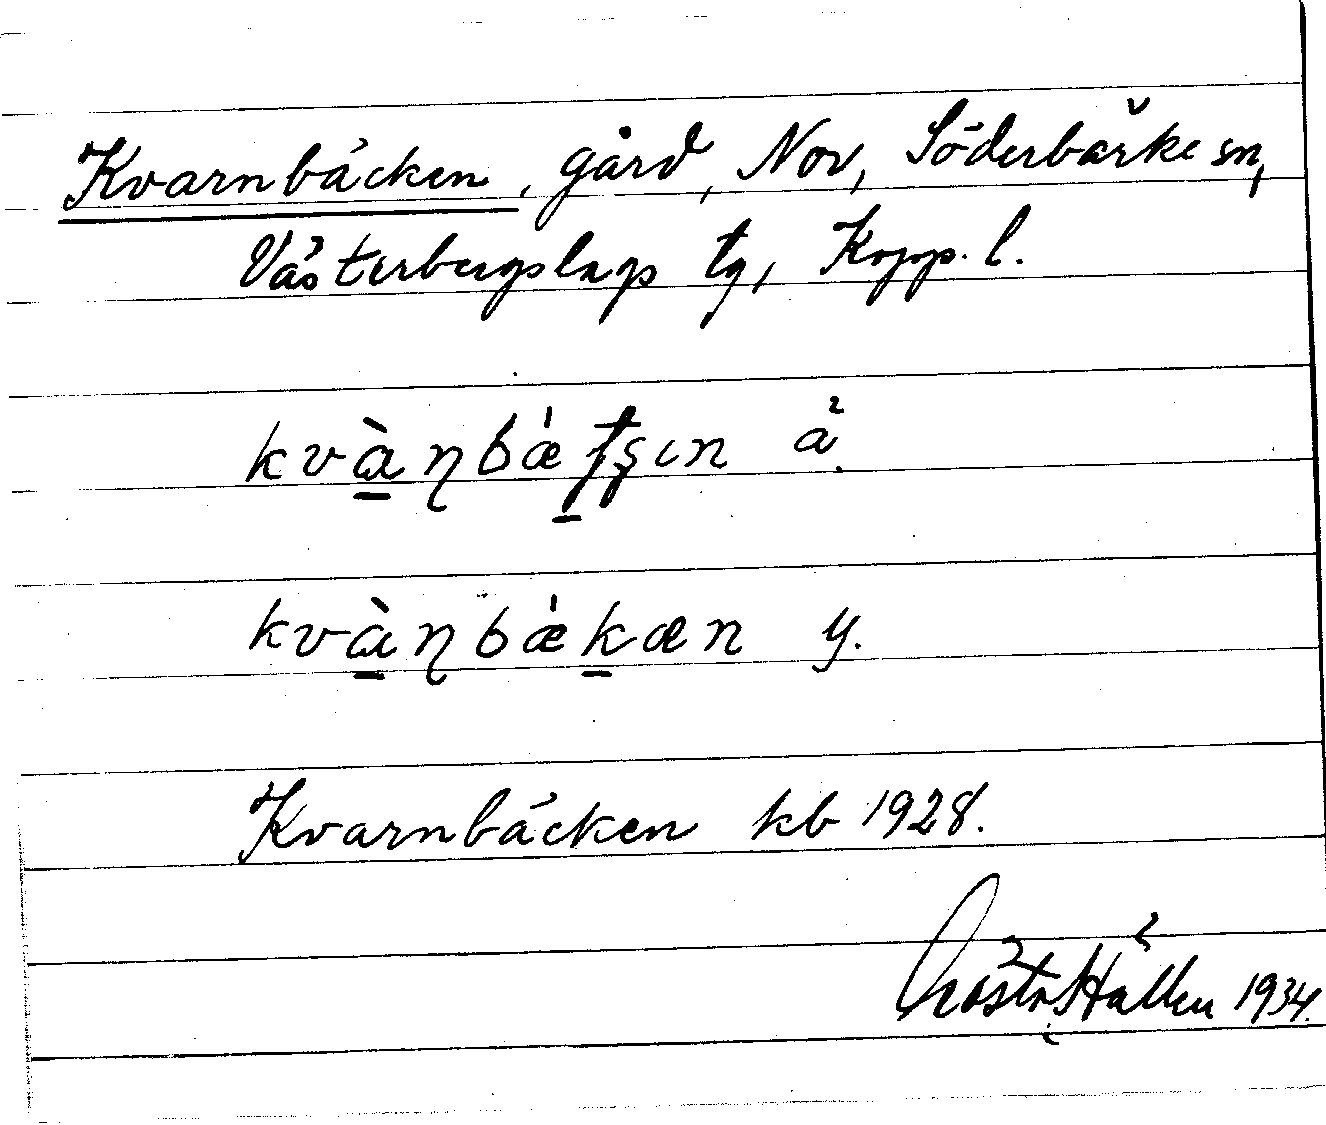 Kvarnbäcken, gård, Nov, Söderbärke sn,
Västerbergslags tg, Kopp. l.
kvàɳbǽʈʂın ä.
kvàɳbǽkæn y.
Kvarnbäcken kb 1928.
Gösta Hällen 1934.